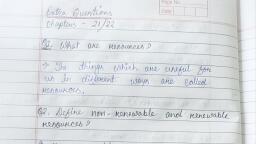 Page No.
Date
Extra Questions
Chapters - 21/22
Q1. What are resources?
→ The things which are useful for
us in different ways are called
resources.
Q2. Define non-renewable and renewable
resources?